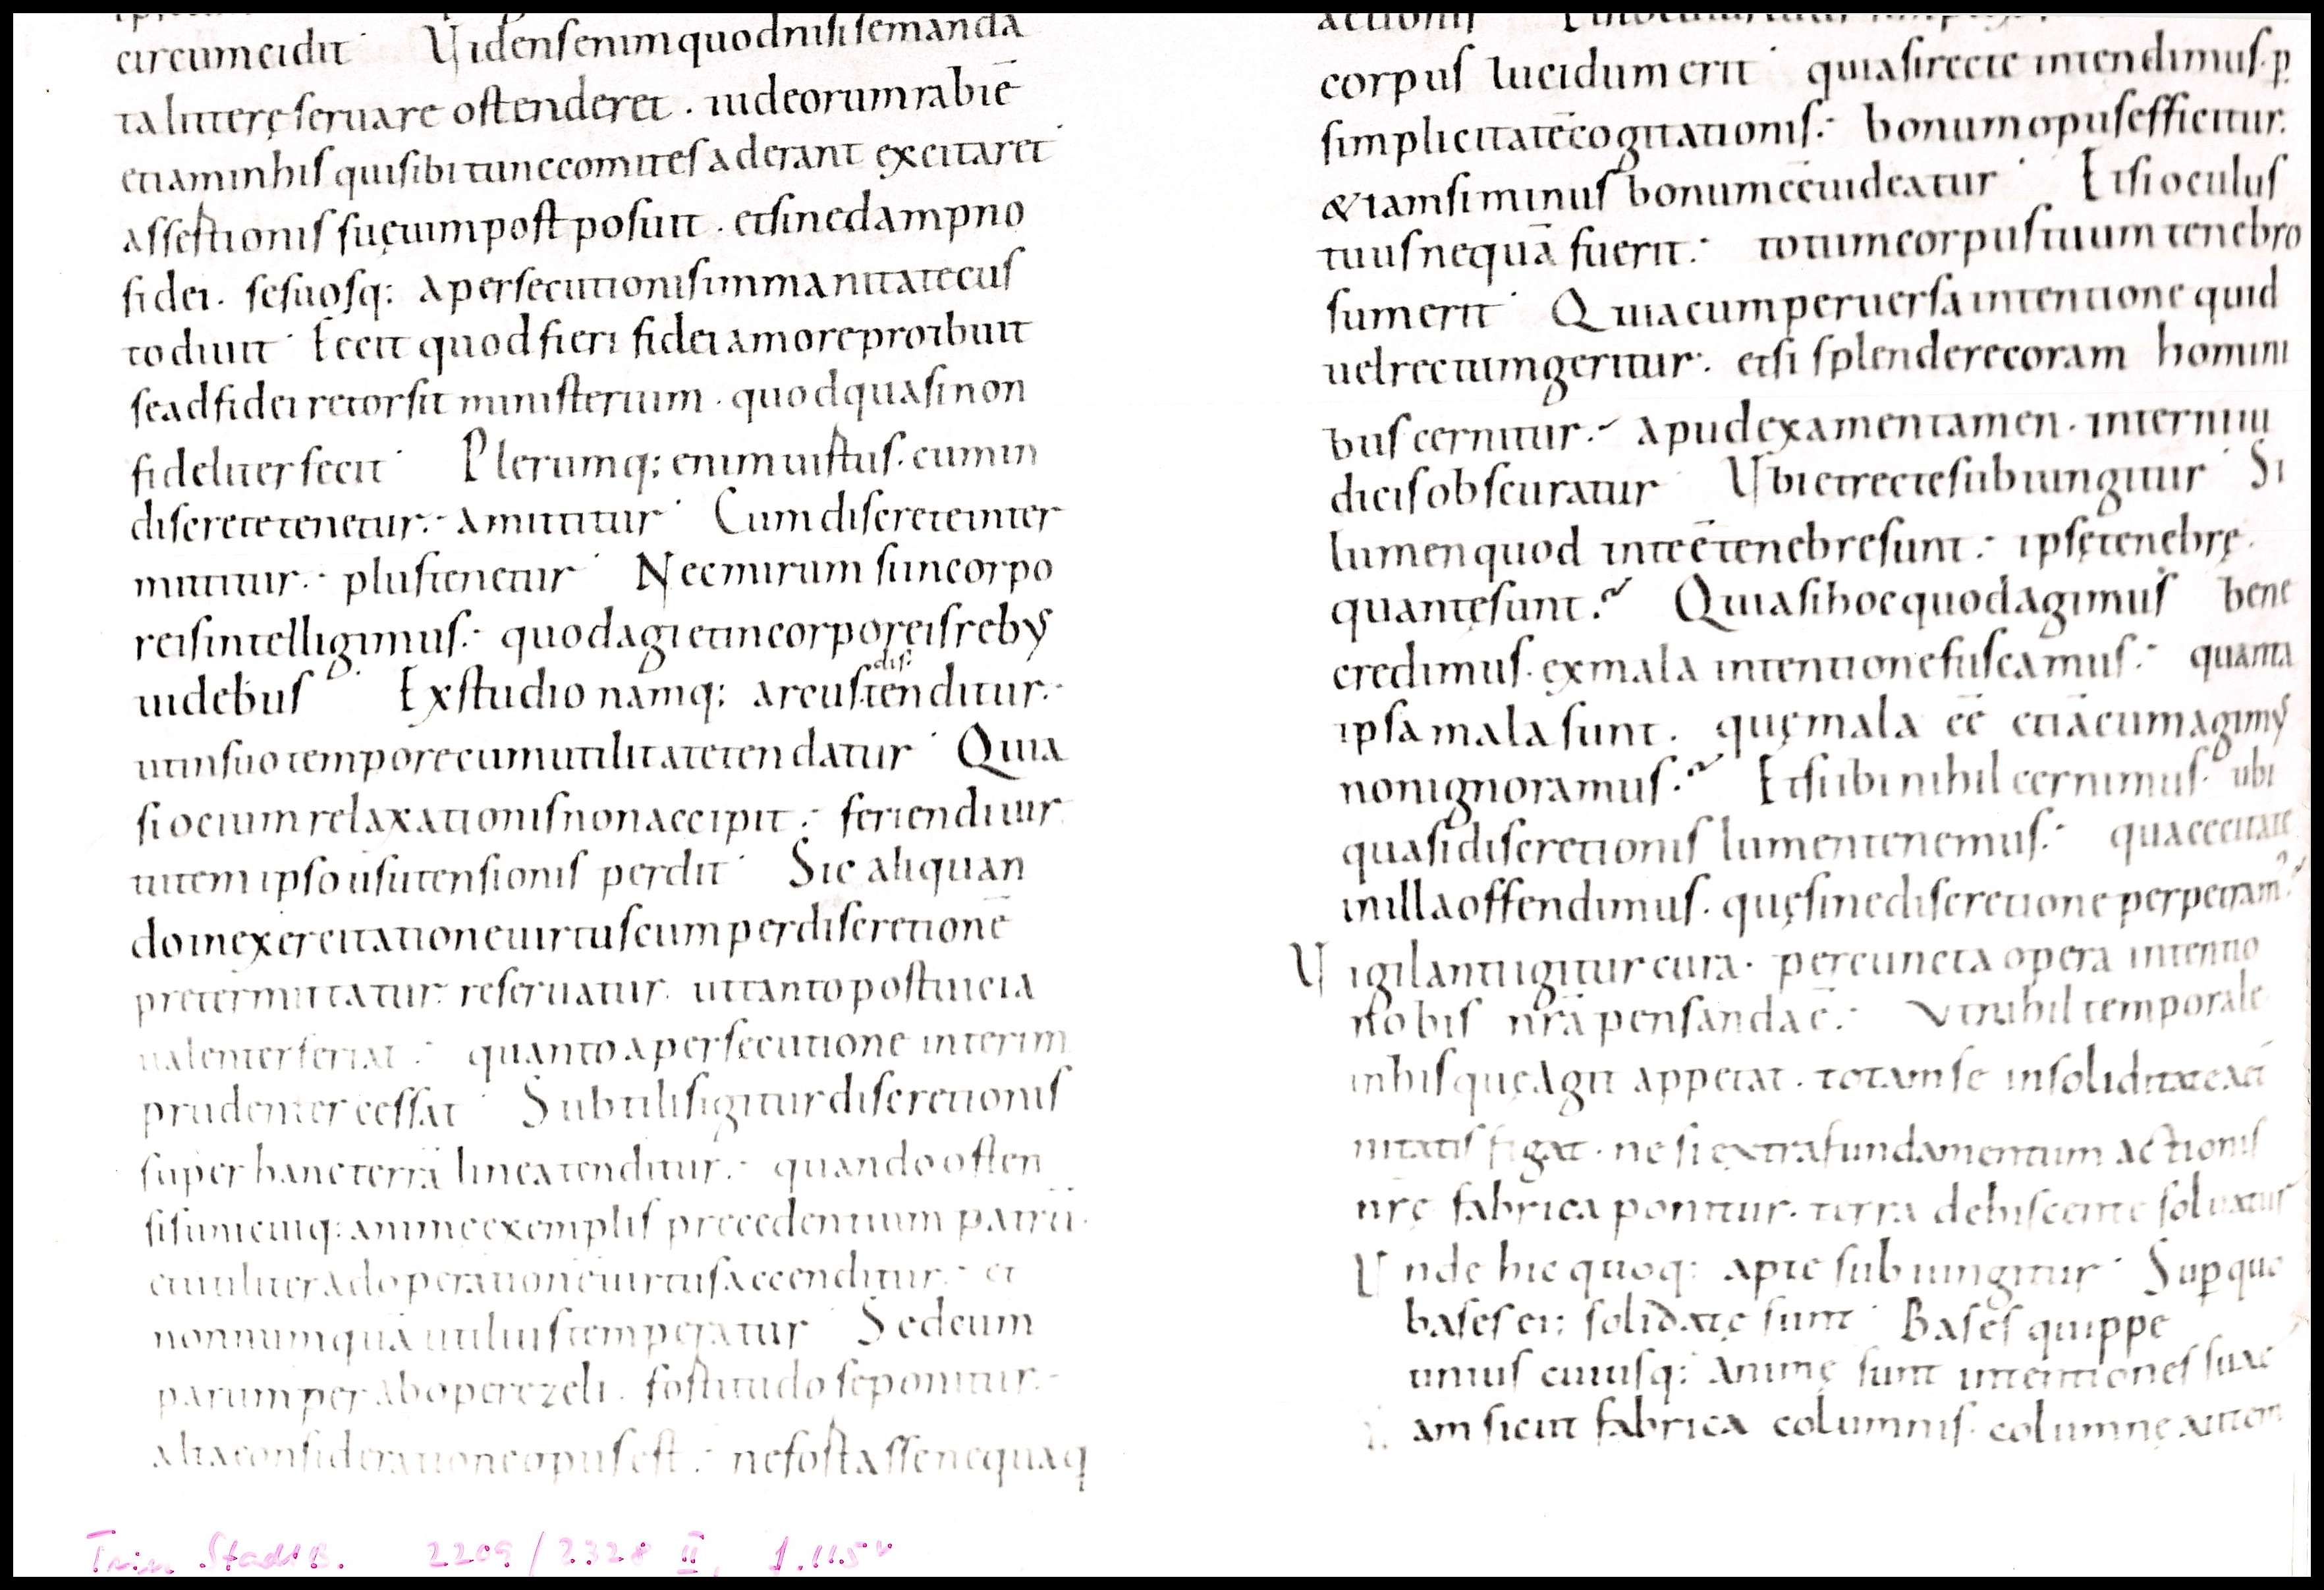 circumcidit· Videns enim quod nisi se manda
ta litterę seruare ostenderet. iudeorum rabiē
etiam in his qui sibi tunc comites aderant excitaret·
assertionis suę uim postposuit. et sine dampno
fidei. se suosq; a persecutionis immanitate cus
todiuit· Fecit quod fieri fidei amore proibuit
se ad fidei retorsit ministerium. quod quasi non
fideliter fecit· Plerumq; enim uirtus. cum in
discrete tenetur. amittitur· Cum discrete inter
mittitur. plus tenetur· Nec mirum si in corpo
reis intelligimus. quod agi et in corporeis rebus
uidebus· Ex studio namq; arcus dis tenditur.
ut in suo tempore cum utilitate tendatur· Quia
si ocium relaxationis non accipit. feriendi uir
tutem ipso usu tensionis perdit· Sic aliquan
do in exercitatione uirtus cum per discretionē
pretermittatur. reseruatur. ut tanto post uicia
ualenter feriat. quanto a persecutione interim
prudenter cessat· Subtilis igitur discretionis
super hanc terrā linea tenditur. quando osten
sis unicuiq; animę exemplis precedentium patrū.
et utiliter ad operationē uirtus accenditur. et
nonnumquā utilius temperatur· Sed cum
parumper ab opere zeli. fortitudo seponitur.
alia consideratione opus est. ne fortasse nequaq
corpus lucidum erit· quia si recte intendimus. p
simplicitatē cogitationis. bonum opus efficitur.
& iam si minus bonum eē uideatur· Et si oculus
tuus nequā fuerit. totum corpus tuum tenebro
sum erit· Quia cum peruersa intentione quid
uel rectum geritur. etsi splendere coram homini
bus cernitur. apud examen tamen. interni iu
dicis obscuratur· Vbi et recte subiungitur· Si
lumen quod in te ē tenebre sunt. ipsę tenebrę.
quantę sunt? Quia si hoc quod agimus bene
credimus. ex mala intentione fuscamus. quanta
ipsa mala sunt. quę mala eē etiā cum agimus
non ignoramus? Et si ubi nihil cernimus. ubi
quasi discretionis lumen tenemus. qua cecitate
in illa offendimus. quę sine discretione perpetram?
Vigilanti igitur cura. per cuncta opera intentio
nobis nrā pensanda ē. Vt nihil temporale
in his quę agit appetat. totam se in soliditate aet
nitatis figat. ne si extra fundamentum actionis
nrę fabrica ponitur. terra dehiscente soluatur
Vnde hic quoq; apte subiungitur· Sup quo
bases ei; solidate sunt· Bases quippe
unius cuiusq; animę sunt intentiones suae
am sicut fabrica columnis. columnę autem
2209/2328 II,